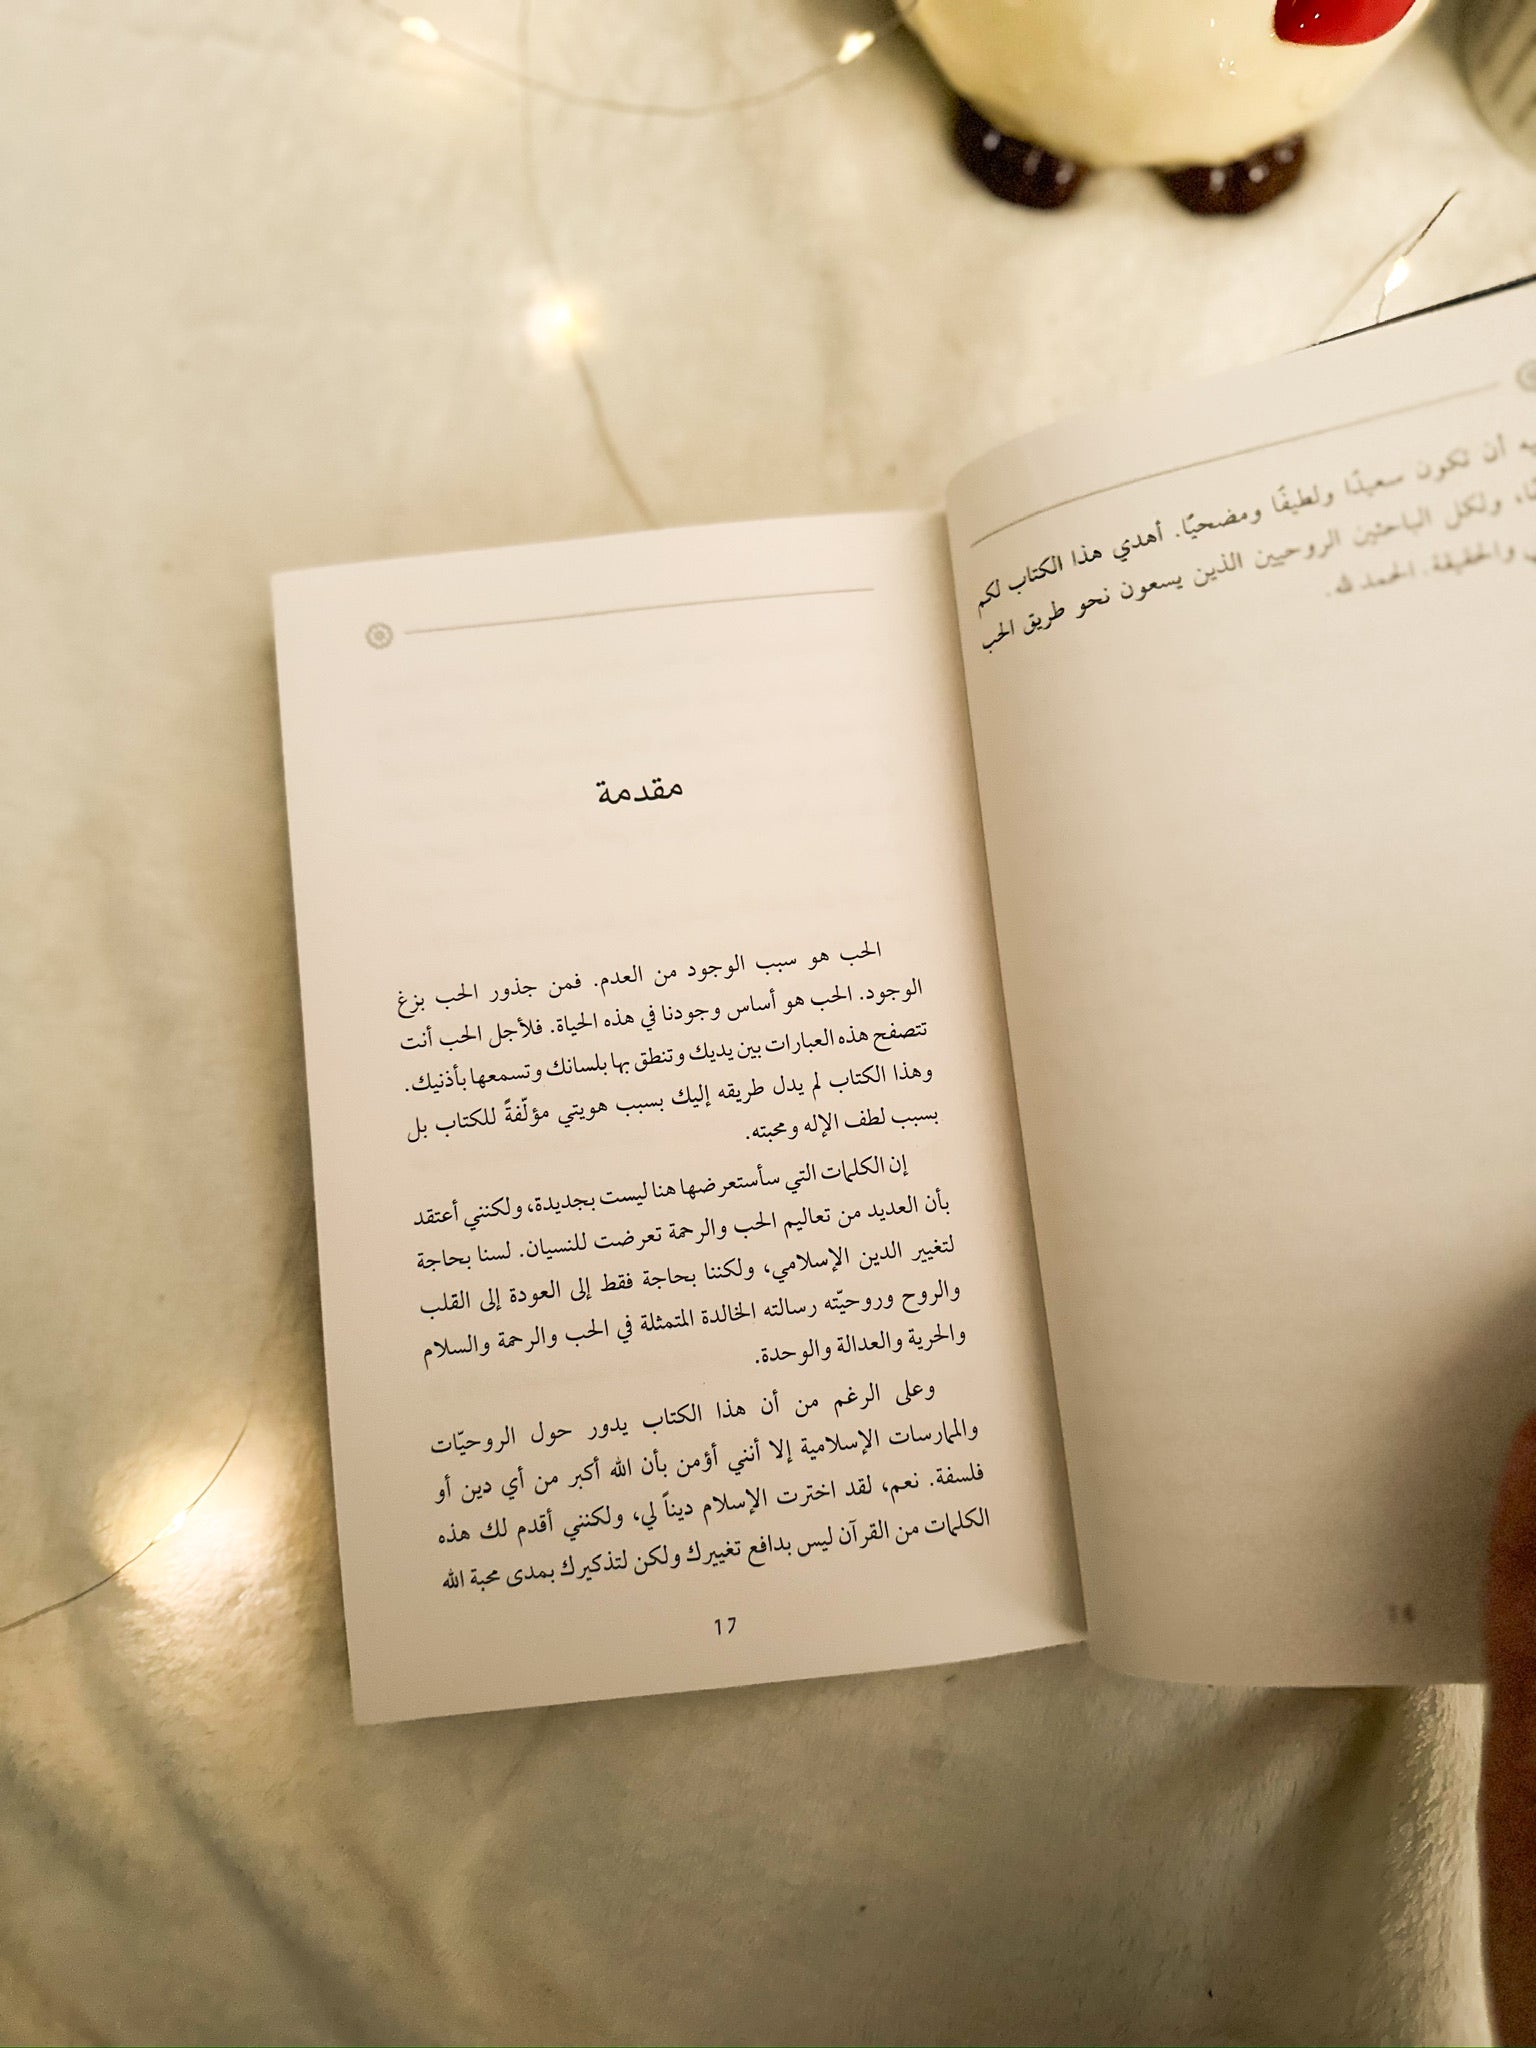 أن تكون سعيدًا ولطيفًا ومضحيًا. أهدي هذا الكتاب لكم
ولكل الباحثين الروحيين الذين يسعون نحو طريق الحب
والحقيقة. الحمد لله.
مقدمة
الحب هو سبب الوجود من العدم. فمن جذور الحب بزغ
الوجود. الحب هو أساس وجودنا في هذه الحياة. فلأجل الحب أنت
تتصفح هذه العبارات بين يديك وتنطق بها بلسانك وتسمعها بأذنيك.
وهذا الكتاب لم يدل طريقه إليك بسبب هويتي مؤلّفةً للكتاب بل
بسبب لطف الإله ومحبته.
إن الكلمات التي سأستعرضها هنا ليست بجديدة، ولكنني أعتقد
بأن العديد من تعاليم الحب والرحمة تعرضت للنسيان. لسنا بحاجة
لتغيير الدين الإسلامي، ولكننا بحاجة فقط إلى العودة إلى القلب
والروح وروحيّته رسالته الخالدة المتمثلة في الحب والرحمة والسلام
والحرية والعدالة والوحدة.
وعلى الرغم من أن هذا الكتاب يدور حول الروحيّات
والممارسات الإسلامية إلا أنني أؤمن بأن الله أكبر من أي دين أو
فلسفة. نعم، لقد اخترت الإسلام ديناً لي، ولكنني أقدم لك هذه
الكلمات من القرآن ليس بدافع تغييرك ولكن لتذكيرك بمدى محبة الله
17